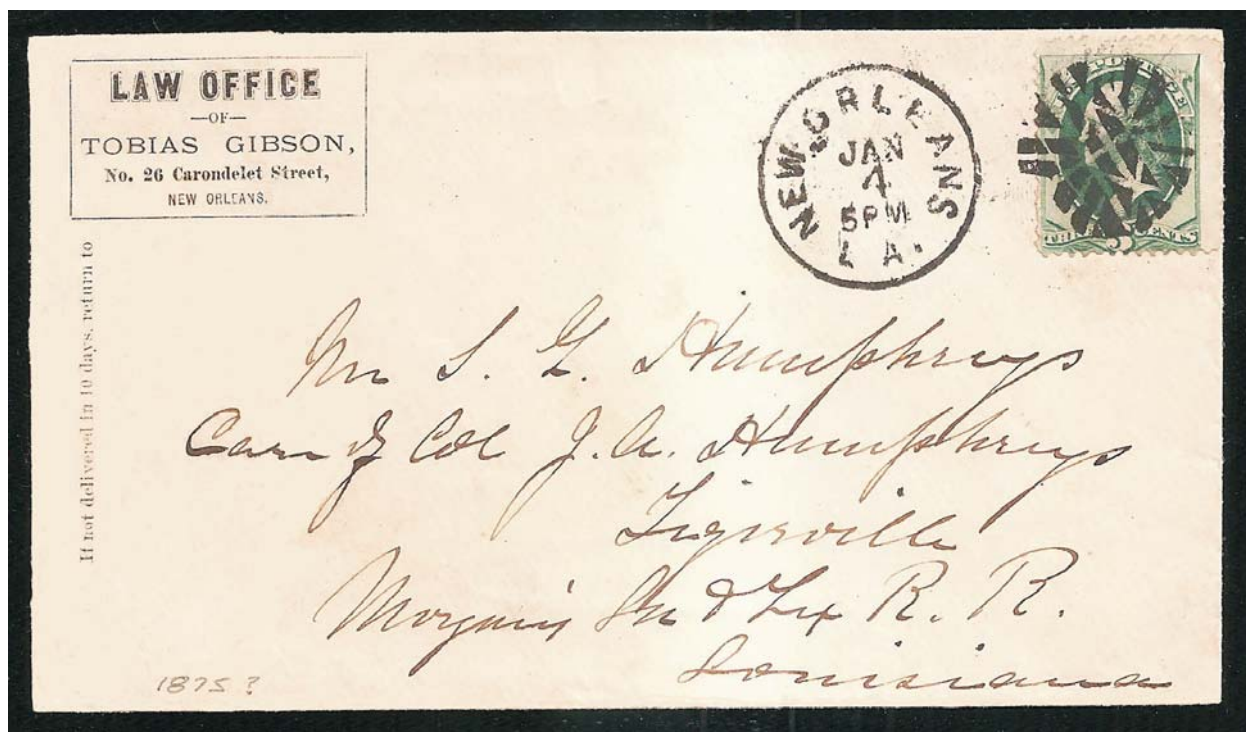 LAW OFFICE
—OF—
TOBIAS GIBSON,
No. 26 Carondelet Street,
NEW ORLEANS.
If not delivered in 10 days, return to
NEW ORLEANS
JAN
5PM
LA.
THREE 3 CENTS
Mr S. G. Humphreys
Care of Col J. A. Humphreys
Tigerville
Morgan's La & Tex R. R.
Louisiana
1875?